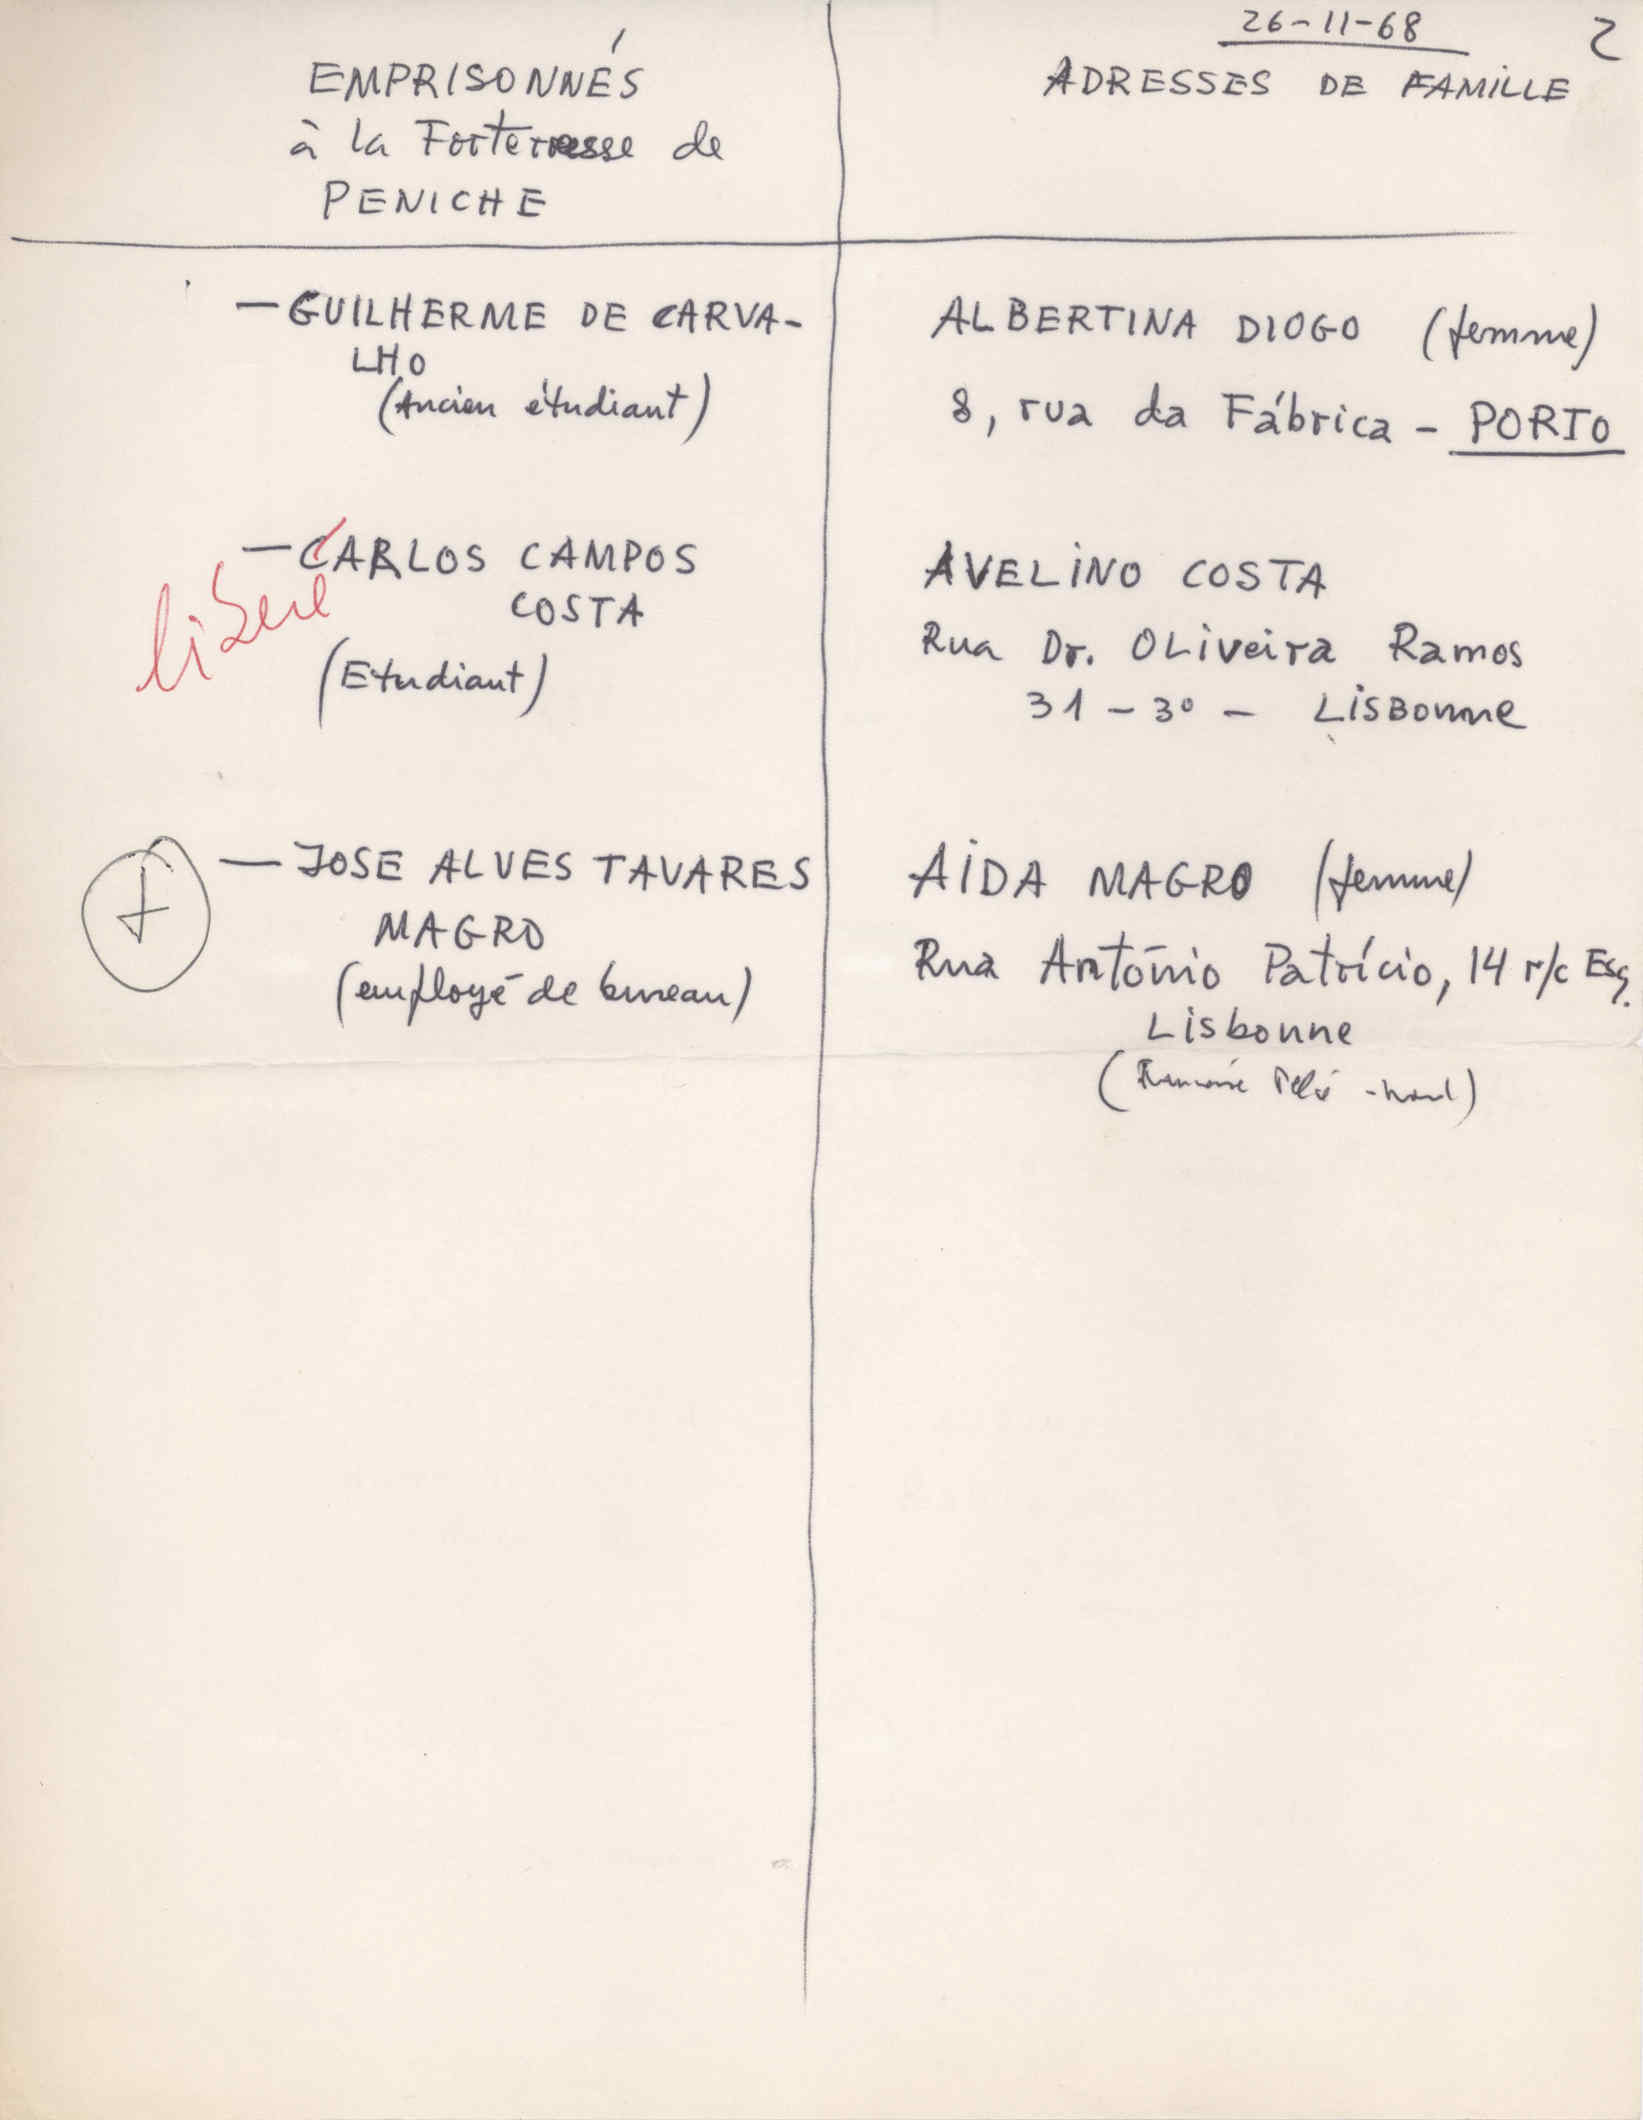 26-11-68
2
EMPRISONNÉS
à la Forteresse de
PENICHE
ADRESSES DE FAMILLE
— GUILHERME DE CARVA-
LHO
(Ancien étudiant)
ALBERTINA DIOGO (femme)
8, rua da Fábrica - PORTO
— CARLOS CAMPOS
COSTA
(Etudiant)
libéré
AVELINO COSTA
Rua Dr. Oliveira Ramos
31 - 3º - Lisbonne
— JOSE ALVES TAVARES
MAGRO
(employé de bureau)
AIDA MAGRO (femme)
Rua António Patrício, 14 r/c Esq.
Lisbonne